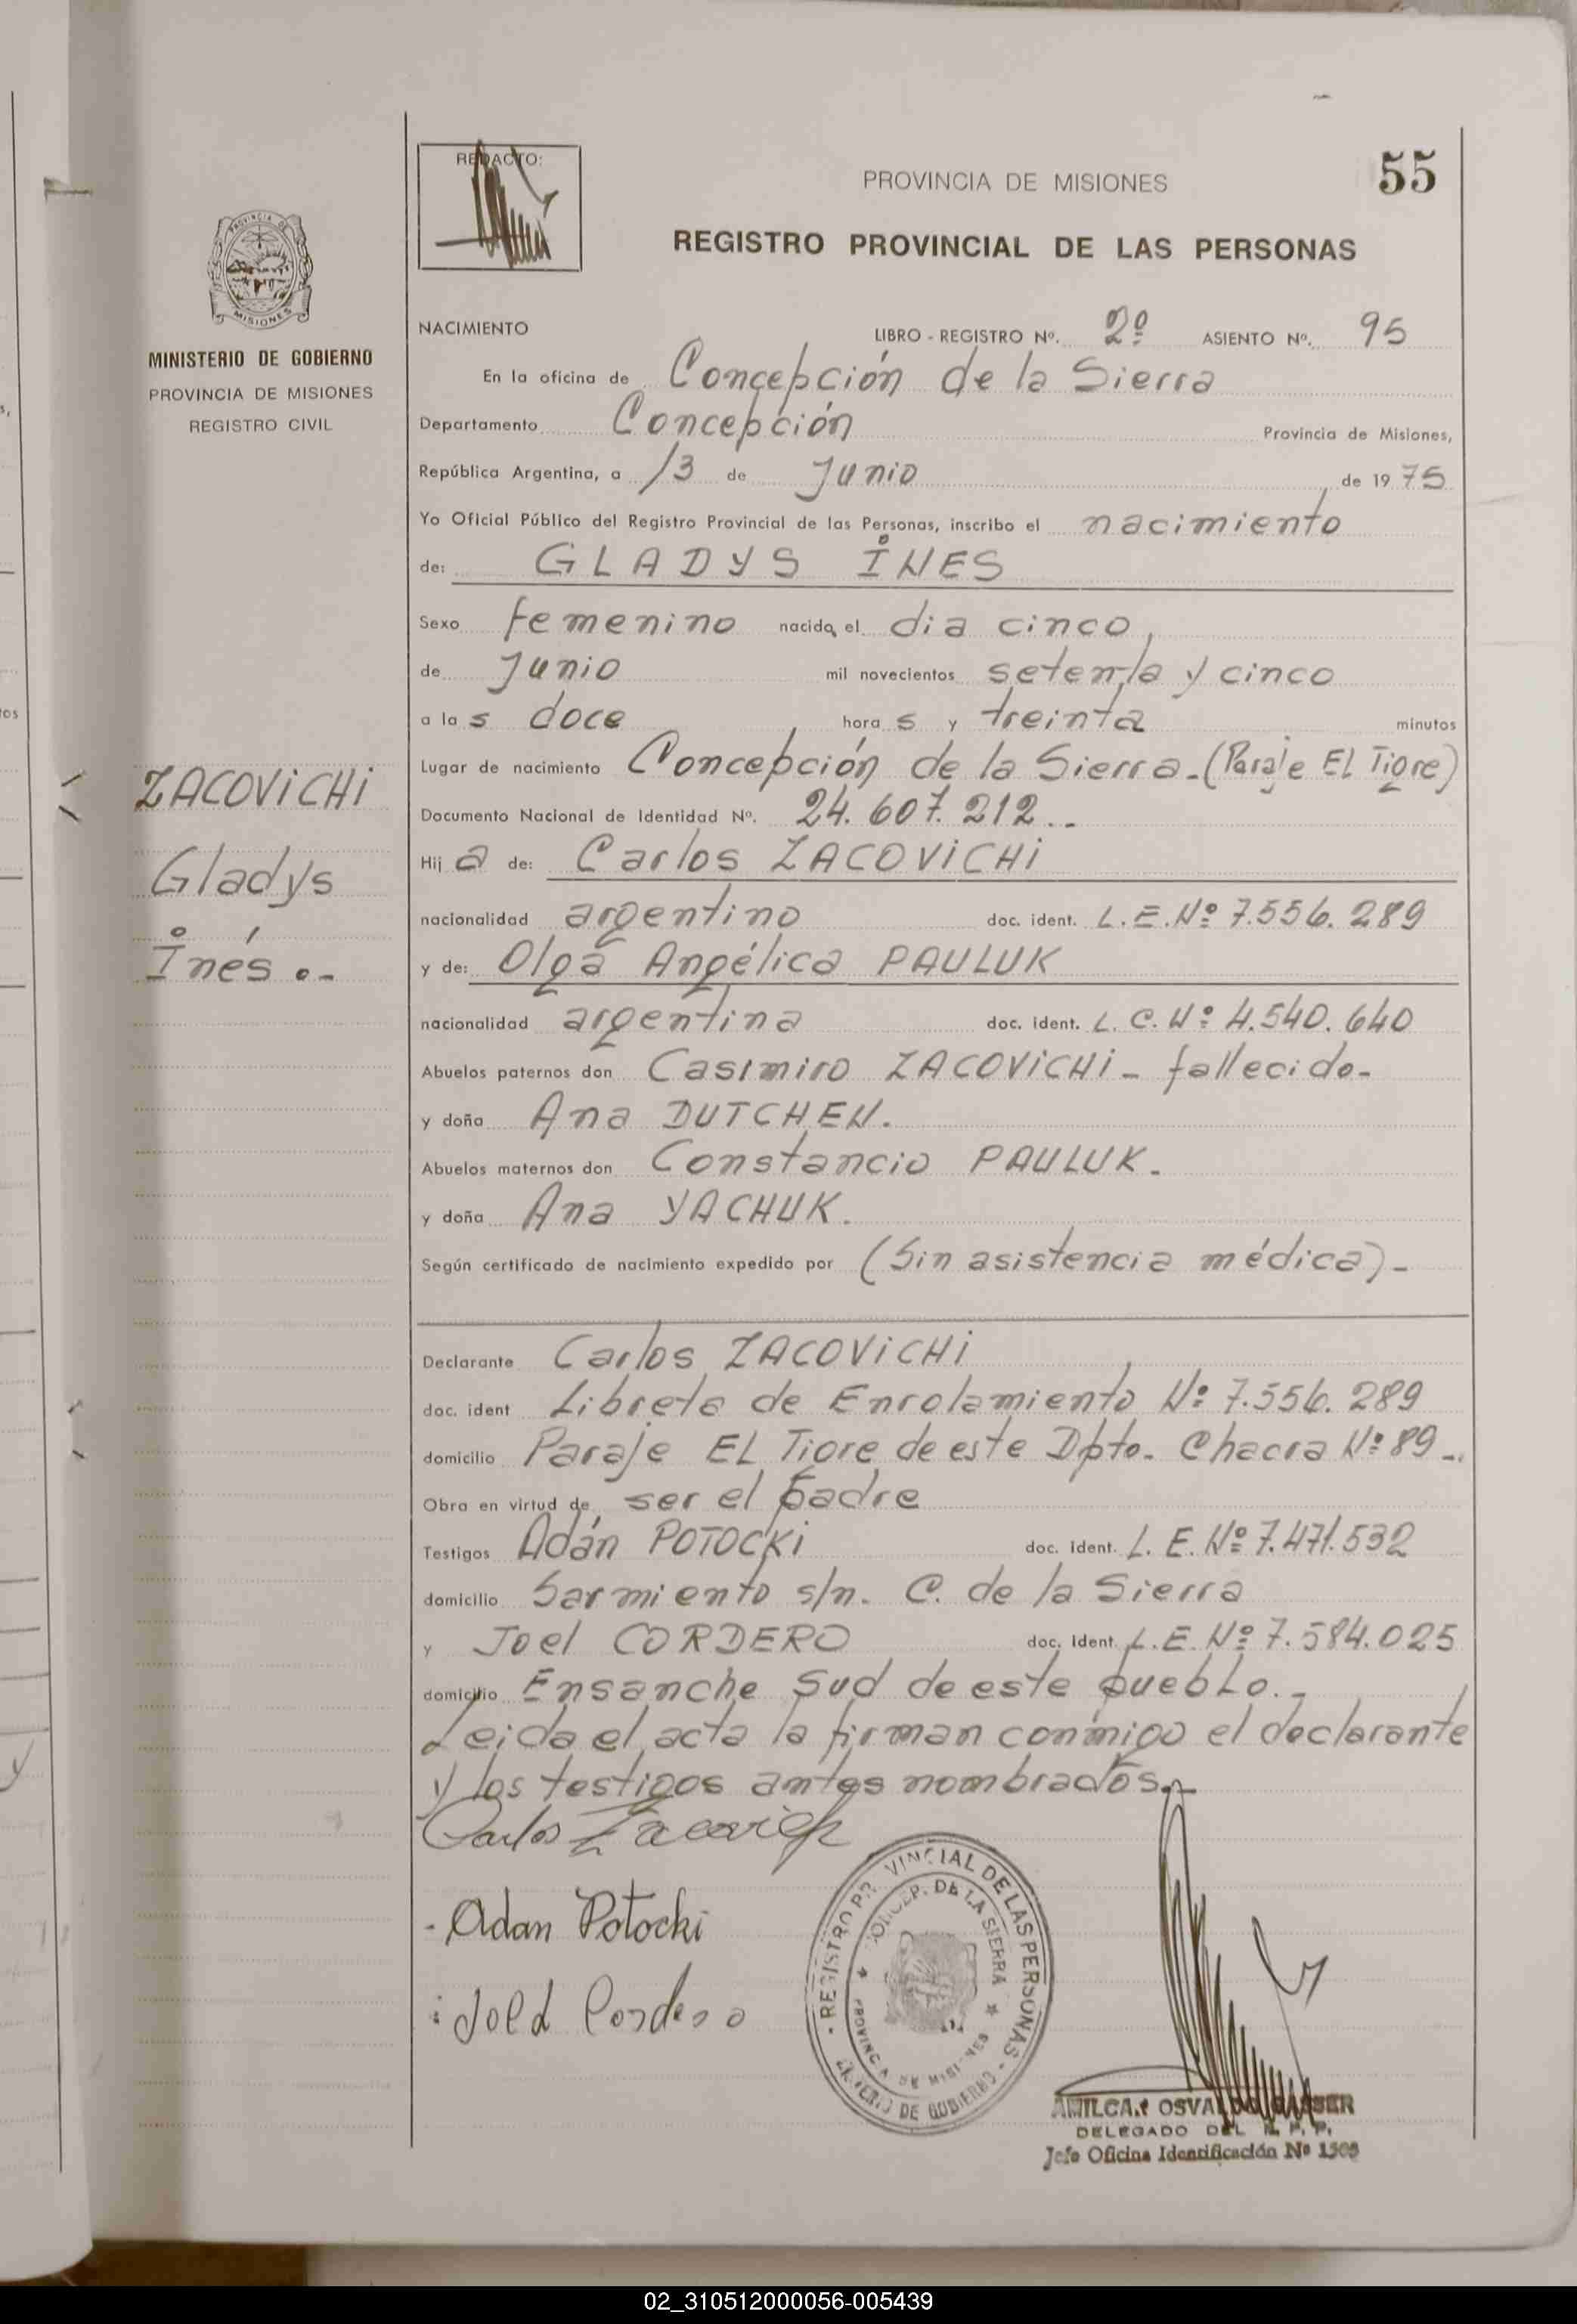 55
REDACTO:
PROVINCIA DE MISIONES
REGISTRO PROVINCIAL DE LAS PERSONAS
PROVINCIA DE
MISIONES
MINISTERIO DE GOBIERNO
PROVINCIA DE MISIONES
REGISTRO CIVIL
ZACOViCHi
Gladys
Inés .-
NACIMIENTO LIBRO - REGISTRO Nº. 2º ASIENTO Nº. 95
En la oficina de Concepción de la Sierra
Departamento Concepción Provincia de Misiones,
República Argentina, a 13 de Junio de 1975
Yo Oficial Público del Registro Provincial de las Personas, inscribo el nacimiento
de: GLADYS INES
Sexo femenino nacida el dia cinco,
de Junio mil novecientos setenta y cinco
a las doce horas y treinta minutos
Lugar de nacimiento Concepción de la Sierra-(Paraje EL Tigre)
Documento Nacional de Identidad Nº. 24.607.212..
Hija de: Carlos ZACOViCHi
nacionalidad argentino doc. ident. L.E.Nº 7.556.289
y de: Olga Angélica PAULUK
nacionalidad argentina doc. ident. L.C.Nº 4.540.640
Abuelos paternos don Casimiro ZACOViCHi- fallecido-
y doña Ana DUTCHEN.
Abuelos maternos don Constancio PAULUK-
y doña Ana YACHUK.
Según certificado de nacimiento expedido por (Sin asistencia médica)-
Declarante Carlos ZACOViCHi
doc. ident Libreta de Enrolamiento Nº 7.556.289
domicilio Paraje EL Tigre de este Dpto. Chacra Nº 89-.
Obra en virtud de, ser el padre
Testigos Adán POTOCKi doc. ident. L.E.Nº 7.471.532
domicilio Sarmiento s/n. C. de la Sierra
y Joel CORDERO doc. ident. L.E.Nº 7.584.025
domicilio Ensanche Sud de este puebLo.-
Leida el acta la firman conmigo el declarante
y los testigos antes nombrados.-
Carlos Zacovich
- Adan Potocki
: Joel Cordero
REGISTRO PROVINCIAL DE LAS PERSONAS
CONCEP. DE LA SIERRA
PROVINCIA DE MISIONES
DE GOBIERNO
AMILCAR OSVALDO GASSER
DELEGADO DEL R. P. P.
Jefe Oficina Identificación Nº
02_310512000056-005439